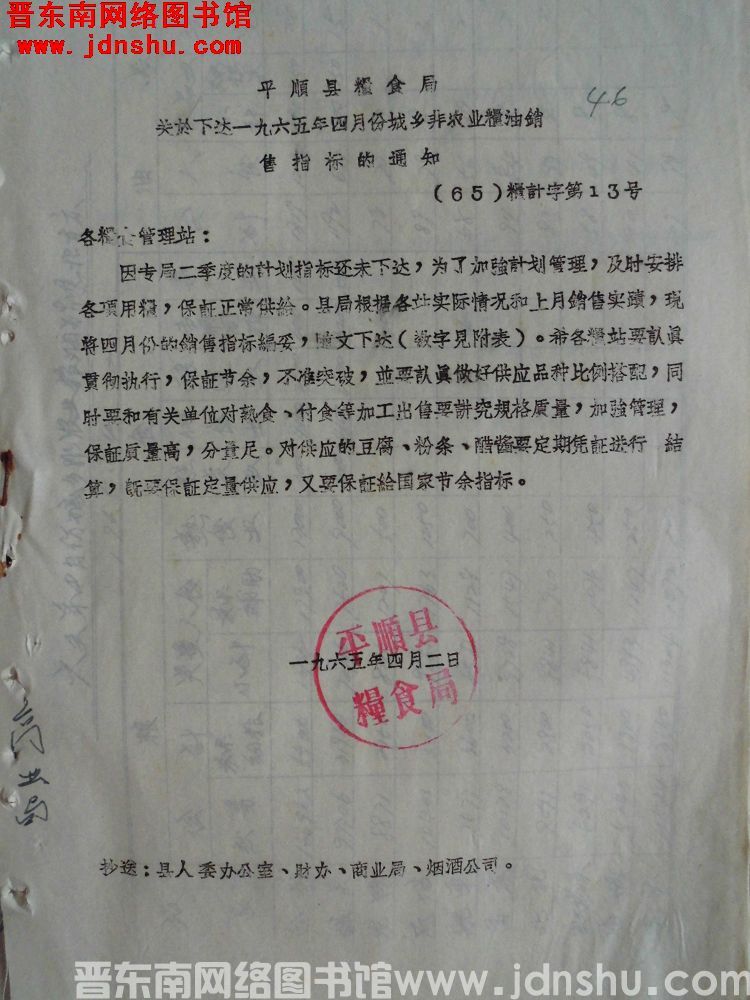 晋东南网络图书馆
www.jdnshu.com
46
平順县糧食局
关於下达一九六五年四月份城乡非农业糧油銷
售指标的通知
(65)糧計字第13号
各糧食管理站：
因专局二季度的計划指标还未下达，为了加強計划管理，及时安排
各項用糧，保証正常供給。县局根据各站实际情况和上月銷售实蹟，現
将四月份的銷售指标編妥，隨文下达(数字見附表)。希各糧站要認眞
貫彻执行，保証节余，不准突破，並要認眞做好供应品种比例搭配，同
时要和有关单位对熟食、付食等加工出售要講究規格质量，加強管理，
保証质量高，分量足。对供应的豆腐、粉条、醋酱要定期凭証进行 結
算，旣要保証定量供应，又要保証給国家节余指标。
平順县
一九六五年四月二日
糧食局
商业局
抄送：县人委办公室、財办、商业局、烟酒公司。
晋东南网络图书馆www.jdnshu.com